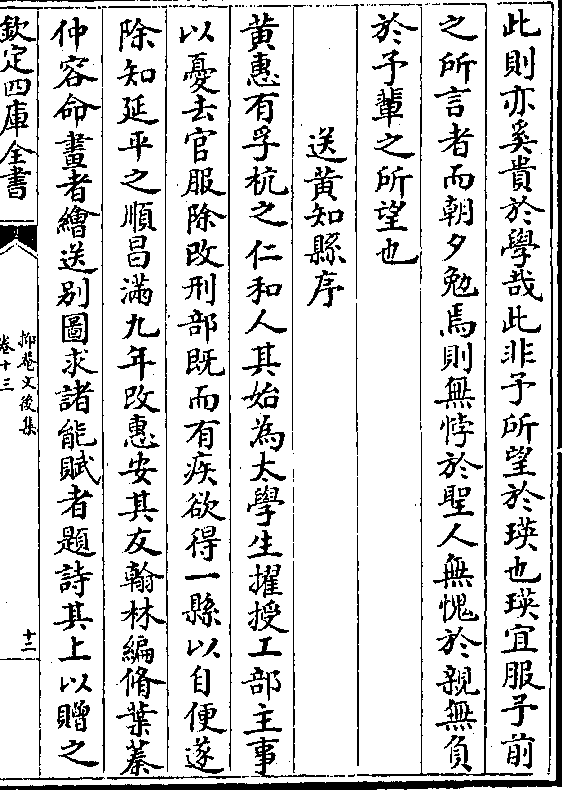 此則亦奚貴於學哉此非予所望於瑛也瑛宜服予前
之所言者而朝夕勉焉則無悖於聖人無愧於親無負
於予輩之所望也
送黄知縣序
黄惠有孚杭之仁和人其始為太學生擢授工部主事
以憂去官服除改刑部既而有疾欲得一縣以自便遂
除知延平之順昌滿九年改惠安其友翰林編脩葉蓁
仲容命畫者繪送别圖求諸能賦者題詩其上以贈之
欽定四庫全書
抑菴文後集
卷十三
十二